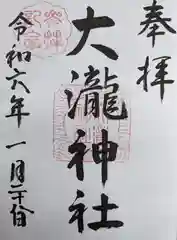 奉拝
大瀧神社
令和六年一月二十日